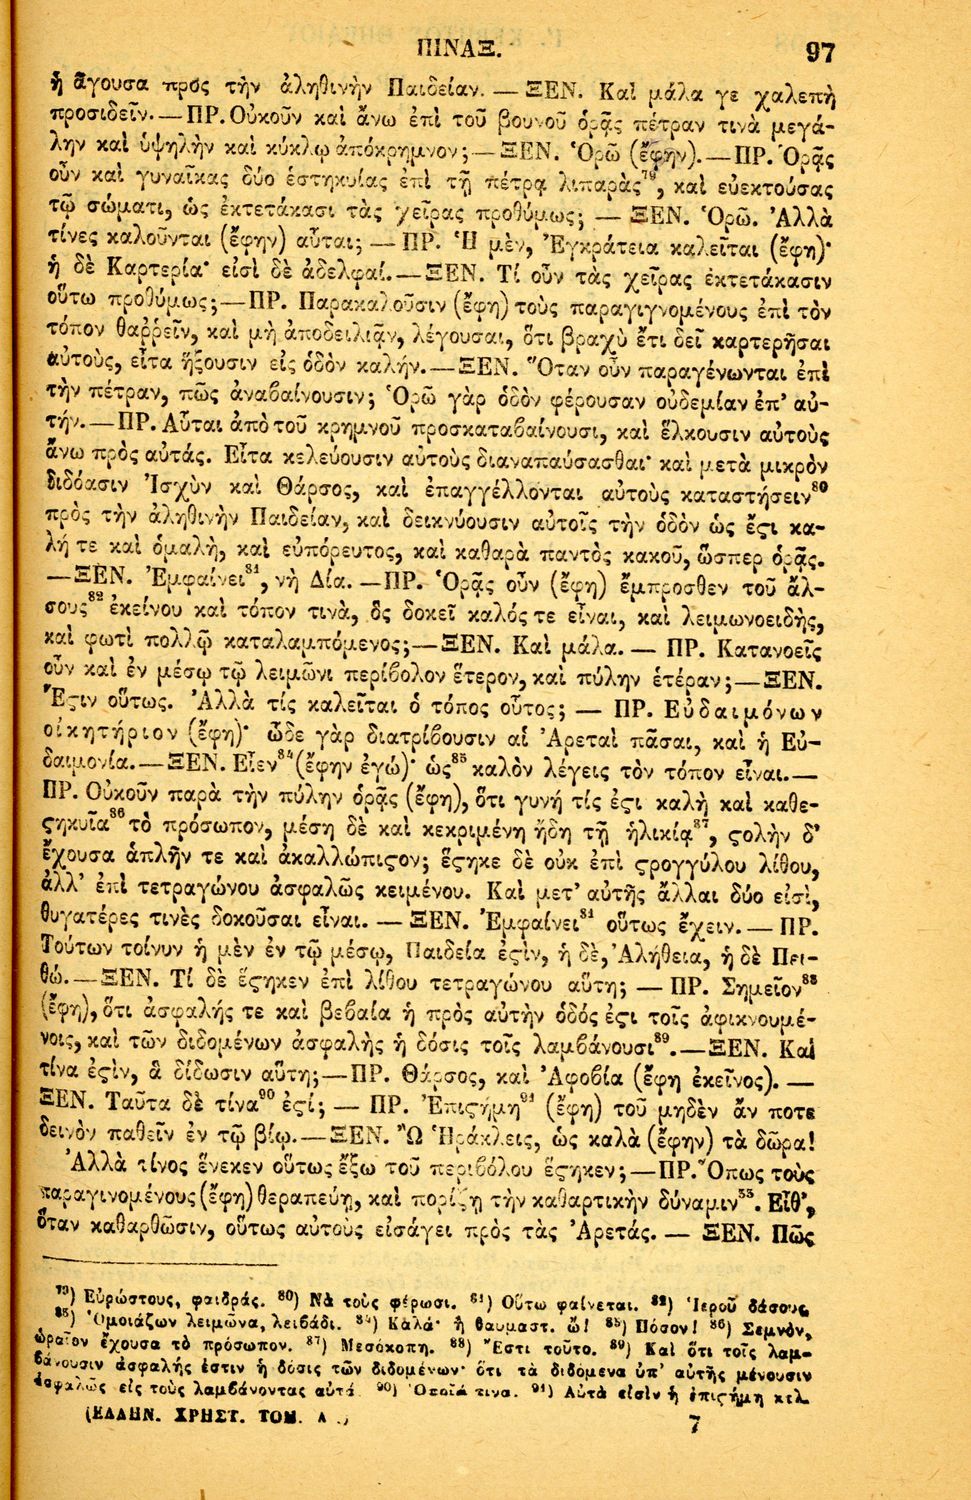 ΠΙΝΑΞ. 97
ἡ ἄγουσα πρὸς τὴν ἀληθινὴν Παιδείαν. — ΞΕΝ. Καὶ μάλα γε χαλεπὴ
προσιδεῖν. — ΠΡ. Οὐκοῦν καὶ ἄνω ἐπὶ τοῦ βουνοῦ ὁρᾷς πέτραν τινὰ μεγά-
λην καὶ ὑψηλὴν καὶ κύκλῳ ἀπόκρημνον; — ΞΕΝ. Ὁρῶ (ἔφην). — ΠΡ. Ὁρᾷς
οὖν καὶ γυναῖκας δύο ἑστηκυίας ἐπὶ τῇ πέτρᾳ λιπαρὰς⁷⁹, καὶ εὐεκτούσας
τῷ σώματι, ὡς ἐκτετάκασι τὰς χεῖρας προθύμως; — ΞΕΝ. Ὁρῶ. Ἀλλὰ
τίνες καλοῦνται (ἔφην) αὗται; — ΠΡ. Ἡ μὲν, Ἐγκράτεια καλεῖται (ἔφη)·
ἡ δὲ Καρτερία· εἰσὶ δὲ ἀδελφαί. — ΞΕΝ. Τί οὖν τὰς χεῖρας ἐκτετάκασιν
οὕτω προθύμως; — ΠΡ. Παρακαλοῦσιν (ἔφη) τοὺς παραγιγνομένους ἐπὶ τὸν
τόπον θαῤῥεῖν, καὶ μὴ ἀποδειλιᾷν, λέγουσαι, ὅτι βραχὺ ἔτι δεῖ καρτερῆσαι
αὐτοὺς, εἶτα ἥξουσιν εἰς ὁδὸν καλήν. — ΞΕΝ. Ὅταν οὖν παραγένωνται ἐπὶ
τὴν πέτραν, πῶς ἀναβαίνουσιν; Ὁρῶ γὰρ ὁδὸν φέρουσαν οὐδεμίαν ἐπ' αὐ-
τήν. — ΠΡ. Αὗται ἀπὸ τοῦ κρημνοῦ προσκαταβαίνουσι, καὶ ἕλκουσιν αὐτοὺς
ἄνω πρὸς αὐτάς. Εἶτα κελεύουσιν αὐτοὺς διαναπαύσασθαι· καὶ μετὰ μικρὸν
διδόασιν Ἰσχὺν καὶ Θάρσος, καὶ ἐπαγγέλλονται αὐτοὺς καταστήσειν⁸⁰
πρὸς τὴν ἀληθινὴν Παιδείαν, καὶ δεικνύουσιν αὐτοῖς τὴν ὁδὸν ὡς ἔϛι κα-
λή τε καὶ ὁμαλὴ, καὶ εὐπόρευτος, καὶ καθαρὰ παντὸς κακοῦ, ὥσπερ ὁρᾷς.
— ΞΕΝ. Ἐμφαίνει⁸¹, νὴ Δία. — ΠΡ. Ὁρᾷς οὖν (ἔφη) ἔμπροσθεν τοῦ ἄλ-
σους⁸² ἐκείνου καὶ τόπον τινὰ, ὃς δοκεῖ καλός τε εἶναι, καὶ λειμωνοειδὴς,
καὶ φωτὶ πολλῷ καταλαμπόμενος; — ΞΕΝ. Καὶ μάλα. — ΠΡ. Κατανοεῖς
οὖν καὶ ἐν μέσῳ τῷ λειμῶνι περίβολον ἕτερον, καὶ πύλην ἑτέραν; — ΞΕΝ.
Ἔϛιν οὕτως. Ἀλλὰ τίς καλεῖται ὁ τόπος οὗτος; — ΠΡ. Εὐδαιμόνων
οἰκητήριον (ἔφη)· ὧδε γὰρ διατρίβουσιν αἱ Ἀρεταὶ πᾶσαι, καὶ ἡ Εὐ-
δαιμονία. — ΞΕΝ. Εἶεν⁸⁴ (ἔφην ἐγώ)· ὡς⁸⁵ καλὸν λέγεις τὸν τόπον εἶναι. —
ΠΡ. Οὐκοῦν παρὰ τὴν πύλην ὁρᾷς (ἔφη), ὅτι γυνή τίς ἐϛι καλὴ καὶ καθε-
ϛηκυῖα⁸⁶ τὸ πρόσωπον, μέση δὲ καὶ κεκριμένη ἤδη τῇ ἡλικίᾳ⁸⁷, ϛολὴν δ'
ἔχουσα ἁπλῆν τε καὶ ἀκαλλώπιϛον; ἕϛηκε δὲ οὐκ ἐπὶ ϛρογγύλου λίθου,
ἀλλ' ἐπὶ τετραγώνου ἀσφαλῶς κειμένου. Καὶ μετ' αὐτῆς ἄλλαι δύο εἰσὶ,
θυγατέρες τινὲς δοκοῦσαι εἶναι. — ΞΕΝ. Ἐμφαίνει⁸¹ οὕτως ἔχειν. — ΠΡ.
Τούτων τοίνυν ἡ μὲν ἐν τῷ μέσῳ, Παιδεία ἐϛὶν, ἡ δὲ, Ἀλήθεια, ἡ δὲ Πει-
θώ. — ΞΕΝ. Τί δὲ ἕϛηκεν ἐπὶ λίθου τετραγώνου αὕτη; — ΠΡ. Σημεῖον⁸⁸
(ἔφη), ὅτι ἀσφαλής τε καὶ βεβαία ἡ πρὸς αὐτὴν ὁδός ἐϛι τοῖς ἀφικνουμέ-
νοις, καὶ τῶν διδομένων ἀσφαλὴς ἡ δόσις τοῖς λαμβάνουσι⁸⁹. — ΞΕΝ. Καὶ
τίνα ἐϛὶν, ἃ δίδωσιν αὕτη; — ΠΡ. Θάρσος, καὶ Ἀφοβία (ἔφη ἐκεῖνος). —
ΞΕΝ. Ταῦτα δὲ τίνα⁹⁰ ἐϛί; — ΠΡ. Ἐπιϛήμη⁹¹ (ἔφη) τοῦ μηδὲν ἄν ποτε
δεινὸν παθεῖν ἐν τῷ βίῳ. — ΞΕΝ. Ὦ Ἡράκλεις, ὡς καλὰ (ἔφην) τὰ δῶρα!
Ἀλλὰ τίνος ἕνεκεν οὕτως ἔξω τοῦ περιβόλου ἕϛηκεν; — ΠΡ. Ὅπως τοὺς
παραγινομένους (ἔφη) θεραπεύῃ, καὶ πορίζῃ τὴν καθαρτικὴν δύναμιν⁹³. Εἶθ',
ὅταν καθαρθῶσιν, οὕτως αὐτοὺς εἰσάγει πρὸς τὰς Ἀρετάς. — ΞΕΝ. Πῶς
⁷⁹) Εὐρώστους, φαιδράς. ⁸⁰) Νὰ τοὺς φέρωσι. ⁸¹) Οὕτω φαίνεται. ⁸²) Ἱεροῦ δάσους
⁸³) Ὁμοιάζων λειμῶνα, λειβάδι. ⁸⁴) Καλά· ἢ θαυμαστ. ὤ! ⁸⁵) Πόσον! ⁸⁶) Σεμνὸν,
ὡραῖον ἔχουσα τὸ πρόσωπον. ⁸⁷) Μεσόκοπη. ⁸⁸) Ἔστι τοῦτο. ⁸⁹) Καὶ ὅτι τοῖς λαμ-
βάνουσιν ἀσφαλής ἐστιν ἡ δόσις τῶν διδομένων· ὅτι τὰ διδόμενα ὑπ' αὐτῆς μένουσιν
ἀσφαλῶς εἰς τοὺς λαμβάνοντας αὐτά. ⁹⁰) Ὁποῖά τινα. ⁹¹) Αὐτὰ εἰσὶν ἡ ἐπιϛήμη κτλ.
(ΕΛΛΗΝ. ΧΡΗΣΤ. ΤΟΜ. Α.) 7